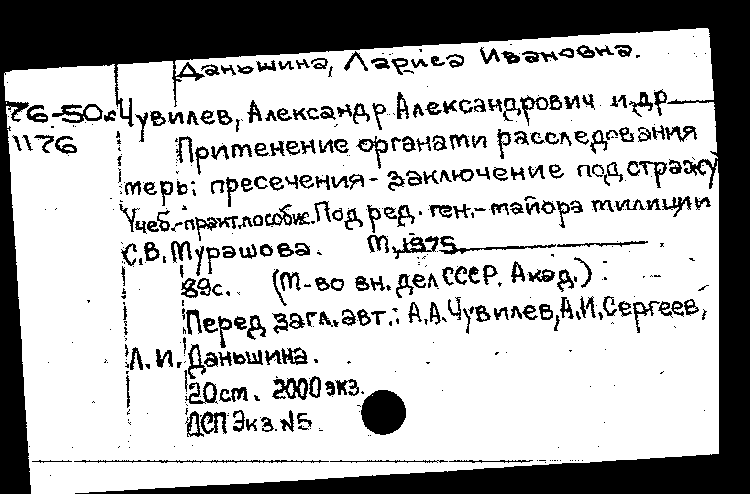 Даньшина, Лариса Ивановна.
76-50к Чувилев, Александр Александрович и др
1176 Применение органами расследования
меры пресечения - заключение под стражу
Учеб.-практ.пособие. Под ред. ген.-майора милиции
С.В. Мурашова. М., 1975.
89с. (М-во вн. дел СССР. Акад.)
Перед загл. авт.: А.А.Чувилев, А.И.Сергеев,
Л.И. Даньшина.
20см. 2000 экз.
ДСП Экз. №5.